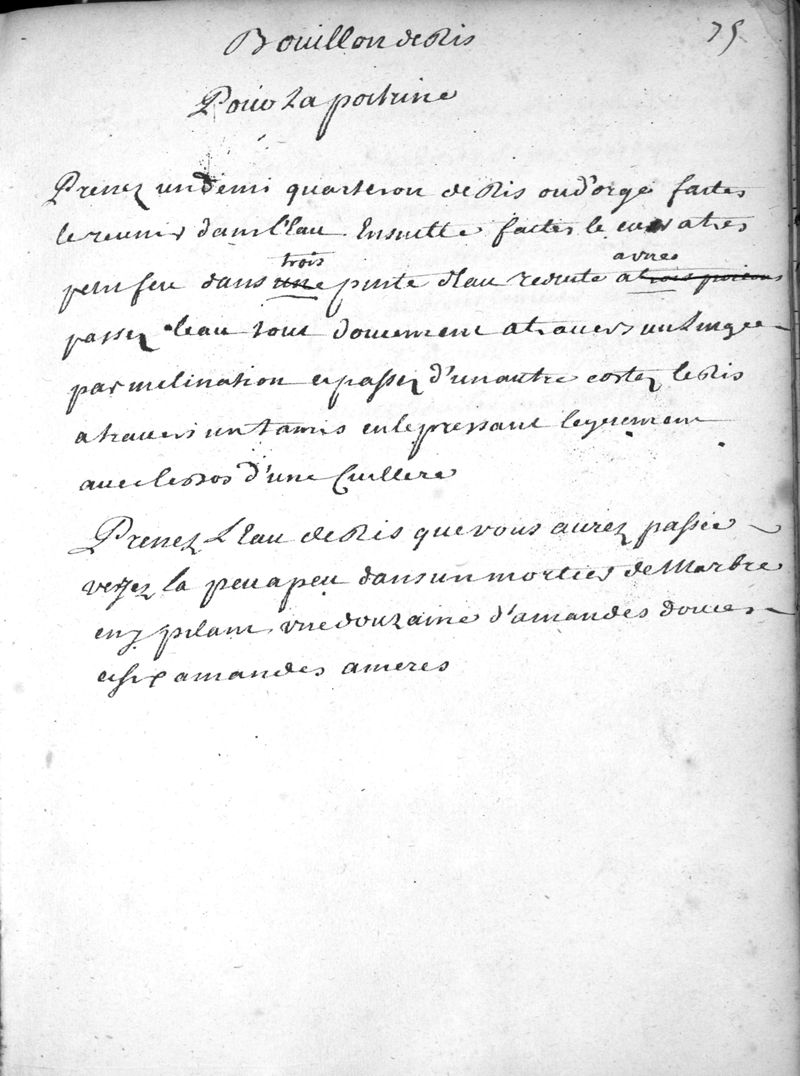 75
Bouillon de Ris
Pour La poitrine
Prenez un demi quarteron de Ris ou d'orge faites
le revenir dans l'Eau Ensuitte faites le cuir a tres
petit feu dans trois pinte d'Eau reduite a
passez l'eau tout doucement a travers un Linge
par inclination et passez d'un autre costez le Ris
a travers un tamis en le pressant legerement
avec le dos d'une Cuillere
Prenez L'Eau de Ris que vous aurez passée
versez la peu a peu dans un mortier de Marbre
en y pilant une douzaine d'amandes douces
et six amandes ameres